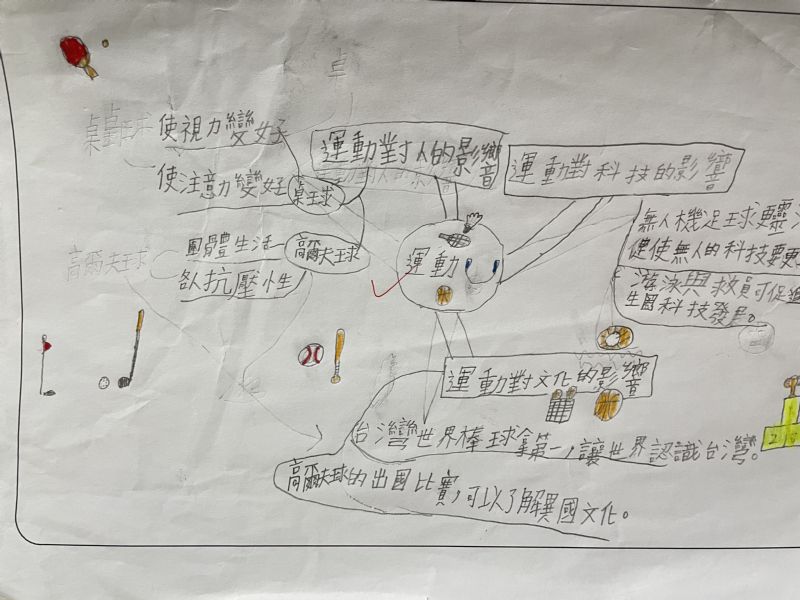 卓
桌球
使視力變好
使注意力變好
桌球
高爾夫球
團體生活
各人抗壓性
高爾夫球
運動對人的影響
運動對科技的影響
運動
無人機足球更靈
健使無人的科技要更
游泳與救員可促進
生圈科技發展。
運動對文化的影響
台灣世界棒球拿第一,讓世界認識台灣。
高爾夫球的出國比賽,可以了解異國文化。
2